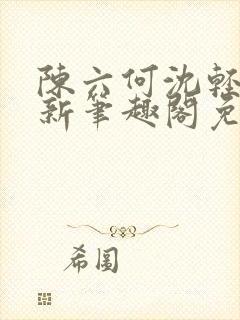 陳六何沈輕
新筆趣閣免
希圖